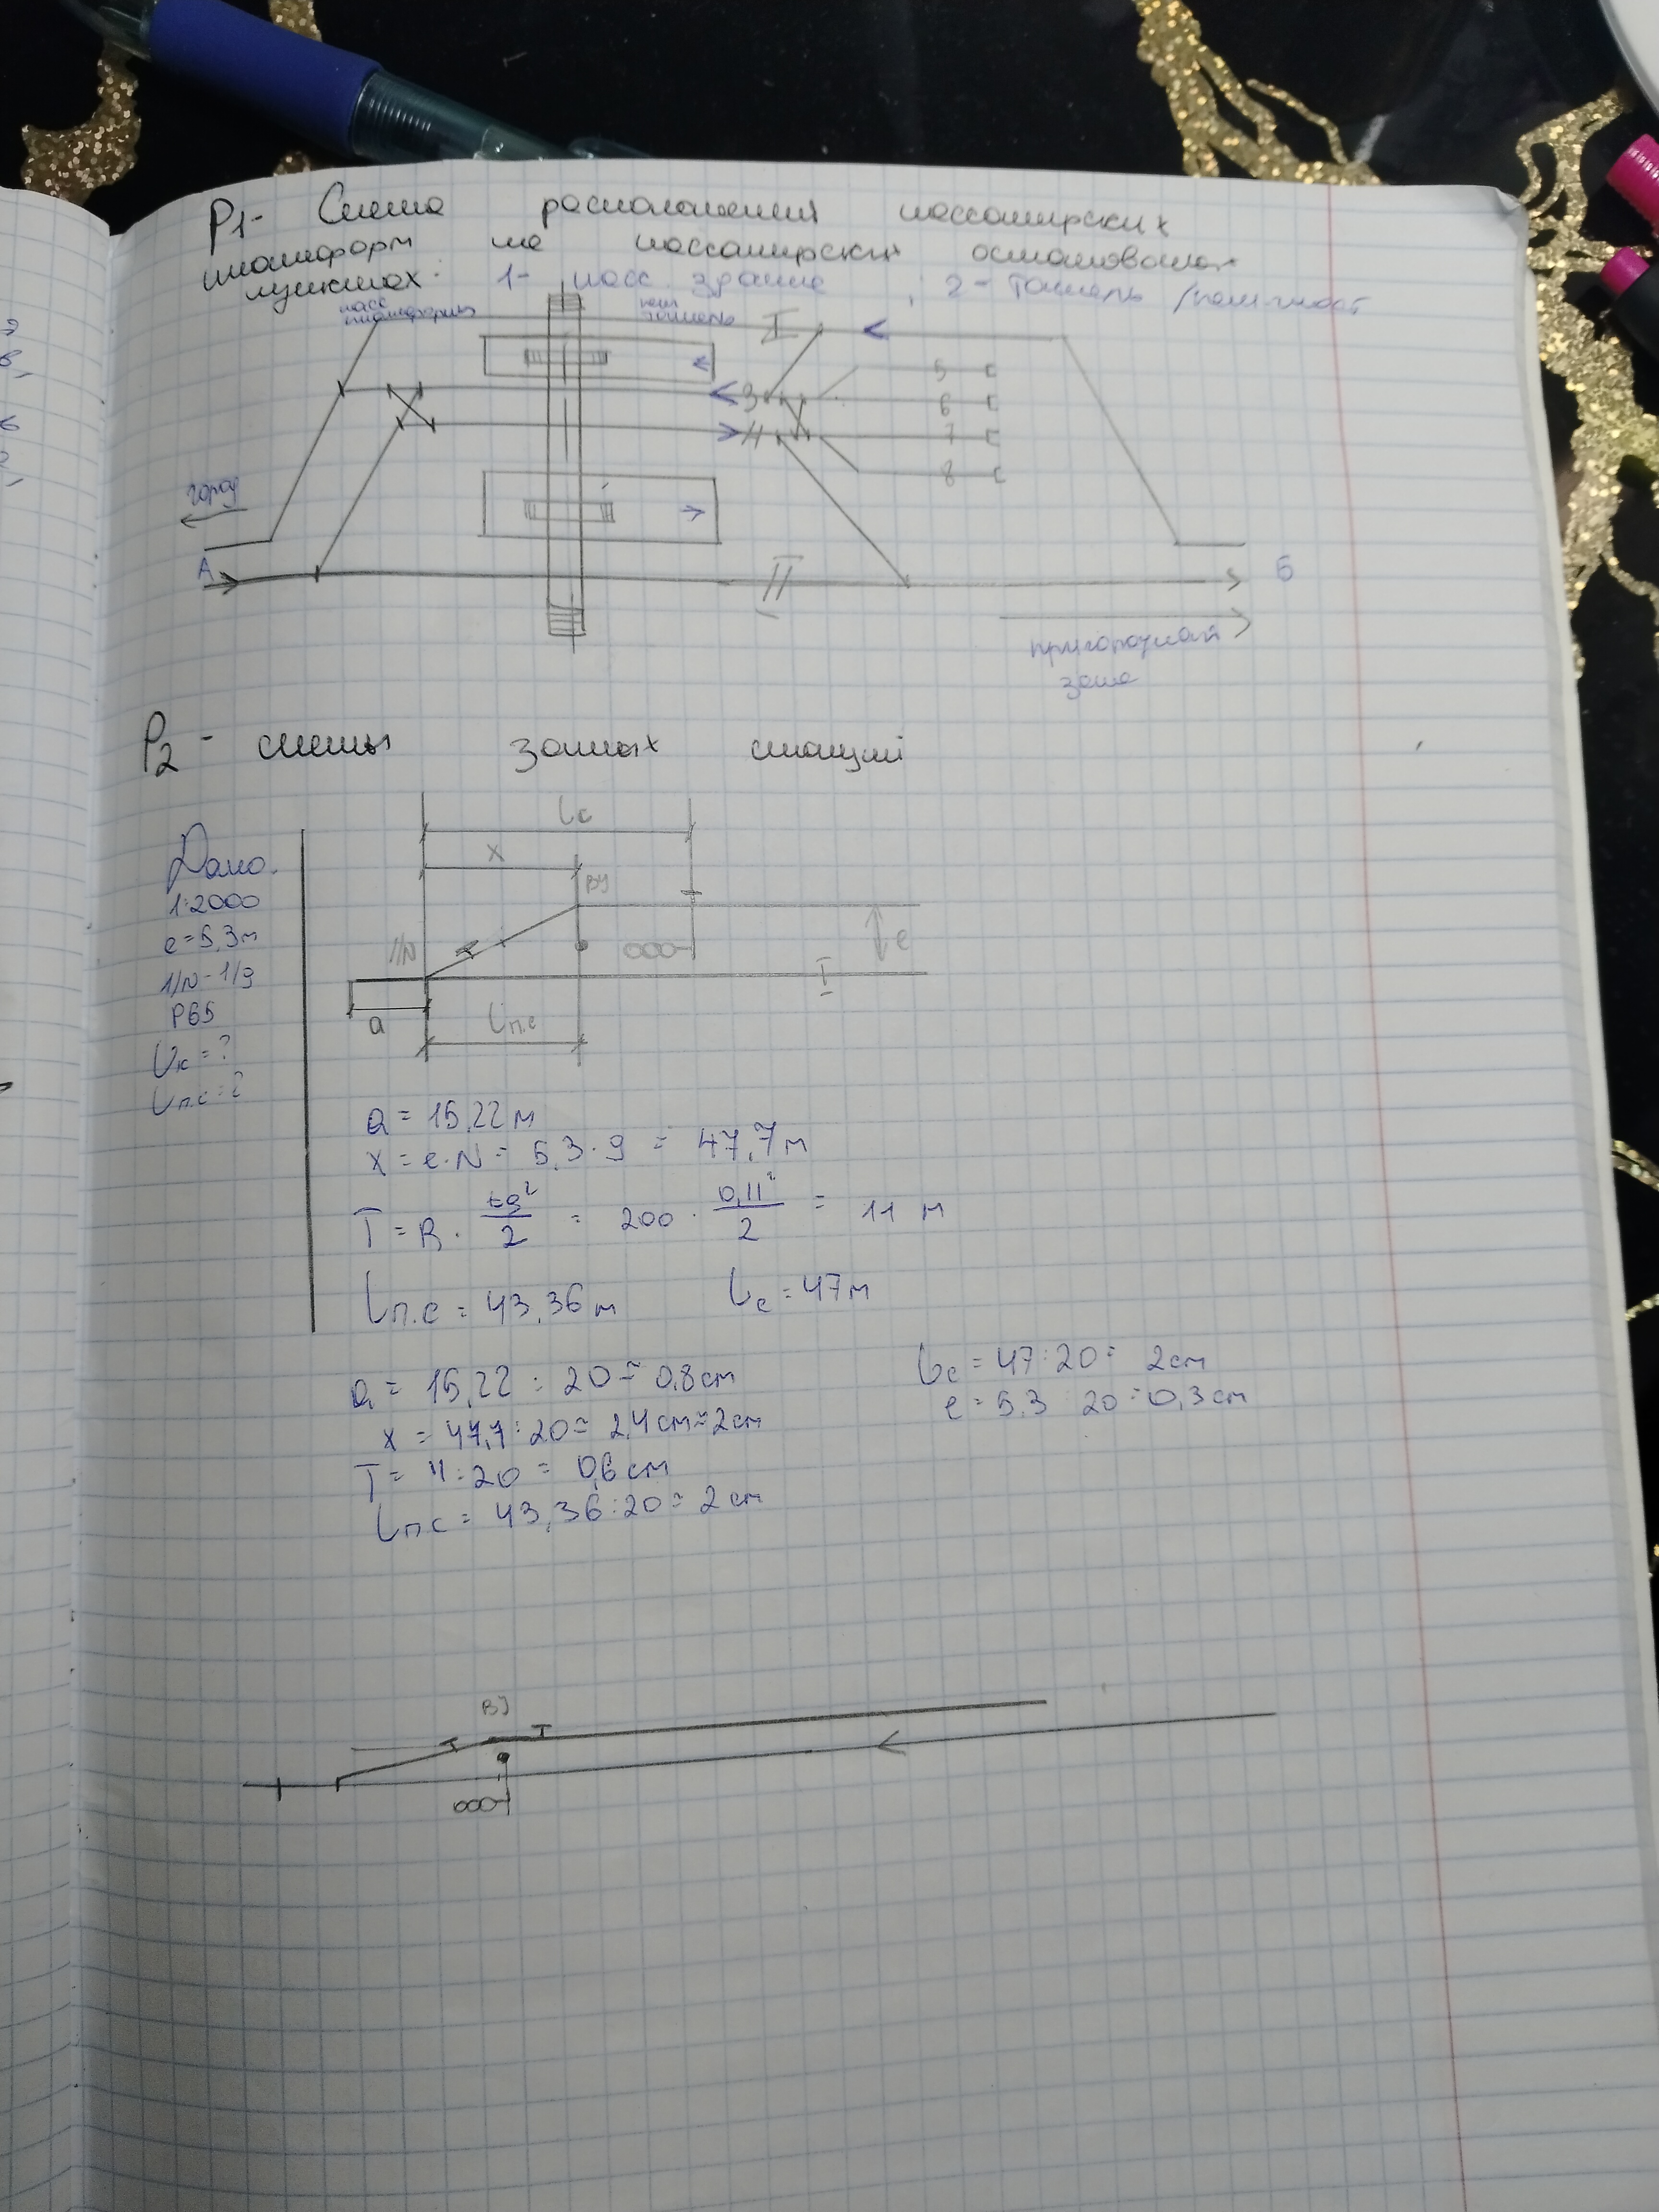 Р1- Схема расположения пассажирских
платформ на пассажирских остановочных
пунктах: 1- пасс. здание ; 2- тоннель /
пасс платформы
пеш тоннель
I
3
5
6
4
7
8
город
А
II
Б
пригородная
зона
Р2 - схемы станций
Дано.
1:2000
е=5,3м
1/N-1/9
Р65
Lс=?
Lп.с=?
Lс
х
ВУ
1/N
е
I
а
Lп.с
а = 15,22 м
х = е·N = 5,3·9 = 47,7 м
Т = R · tg²/2 = 200 · 0,11²/2 = 11 м
Lп.с = 43,36 м Lс = 47м
а = 15,22 : 20 = 0,8 см
х = 47,7:20 = 2,4 см≈2см
Т = 11:20 = 0,6 см
Lп.с = 43,36:20 = 2 см
Lс = 47:20 = 2см
е = 5,3 20 = 0,3 см
ВУ